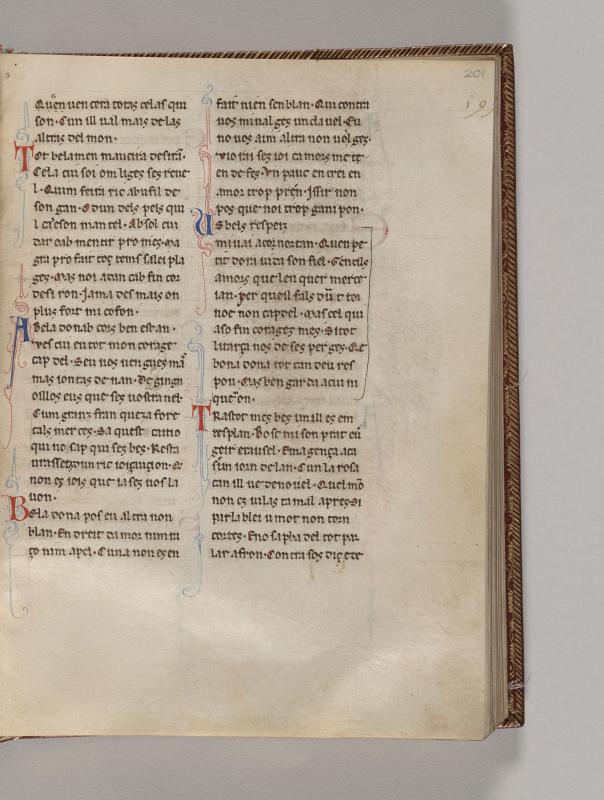 201
Quen uen cera totas celas qui
son. Cun ill ual mais de las
altras del mon.
Tot belamen maucira desiran.
Cela cui soi om liges ses reue
l. Quim feira ric ab u fil de
son gan. O dun dels pels qui
l cies on mantel. Ab sol cui
dar o ab mentir pro mes. Ma
gra pro fait toz tems sa lei pla
ges. Mas noi a tan cab fin cor
desi ron. Ia ma des mais on
plus fort mi cofon.
A Bela do nab cors ben estan.
ves cui eu tot mon corage
cap del. Seu uos uen gues man
mas ion tas de nan. De gingn
osillos eus que ses uostra nel.
Cum granz fran queza fo re
cals mer ces. Sa quest
qui no sap qui ses bes. Resta
uon.
Bela dona pos eu altra non
blan. En dreit da mor nim ra
zo nim apel. Cuna non es en
fait ni en sen blan. Qui contra
uos mi ual ges un da uel. Eu
no uos aim altra non uol ges.
en de fes. Un pauc en crei en
amor trop pren. Issir non
pos que noi trop ga ni pon.
Us bels respeiz
mi uai acor no tan. Quen pe
tit do ra ui da son fiel. Gentils
amors quel en quer merce
ian. per que il fals
noe non cap del. Mas cel qui
a so fin corages mes. Si tot
li tarça nos de ses per ges. Qe
bona dona tot can deu res
pon. Mas ben gar da a cui ni
que on.
Tras tot mes bes un ill es em
tresplan. Bo se mi son prat e u
geir e rau sel. Em a gença a ca
sun iorn de lan. Cun la rosa
can ill ue de no uel. Quel mon
non es uilas ta mal apres. Si
par la blei u mot non torn
cortes. E no sap ha del tot par
lar a fron. Con tra ses diz e te